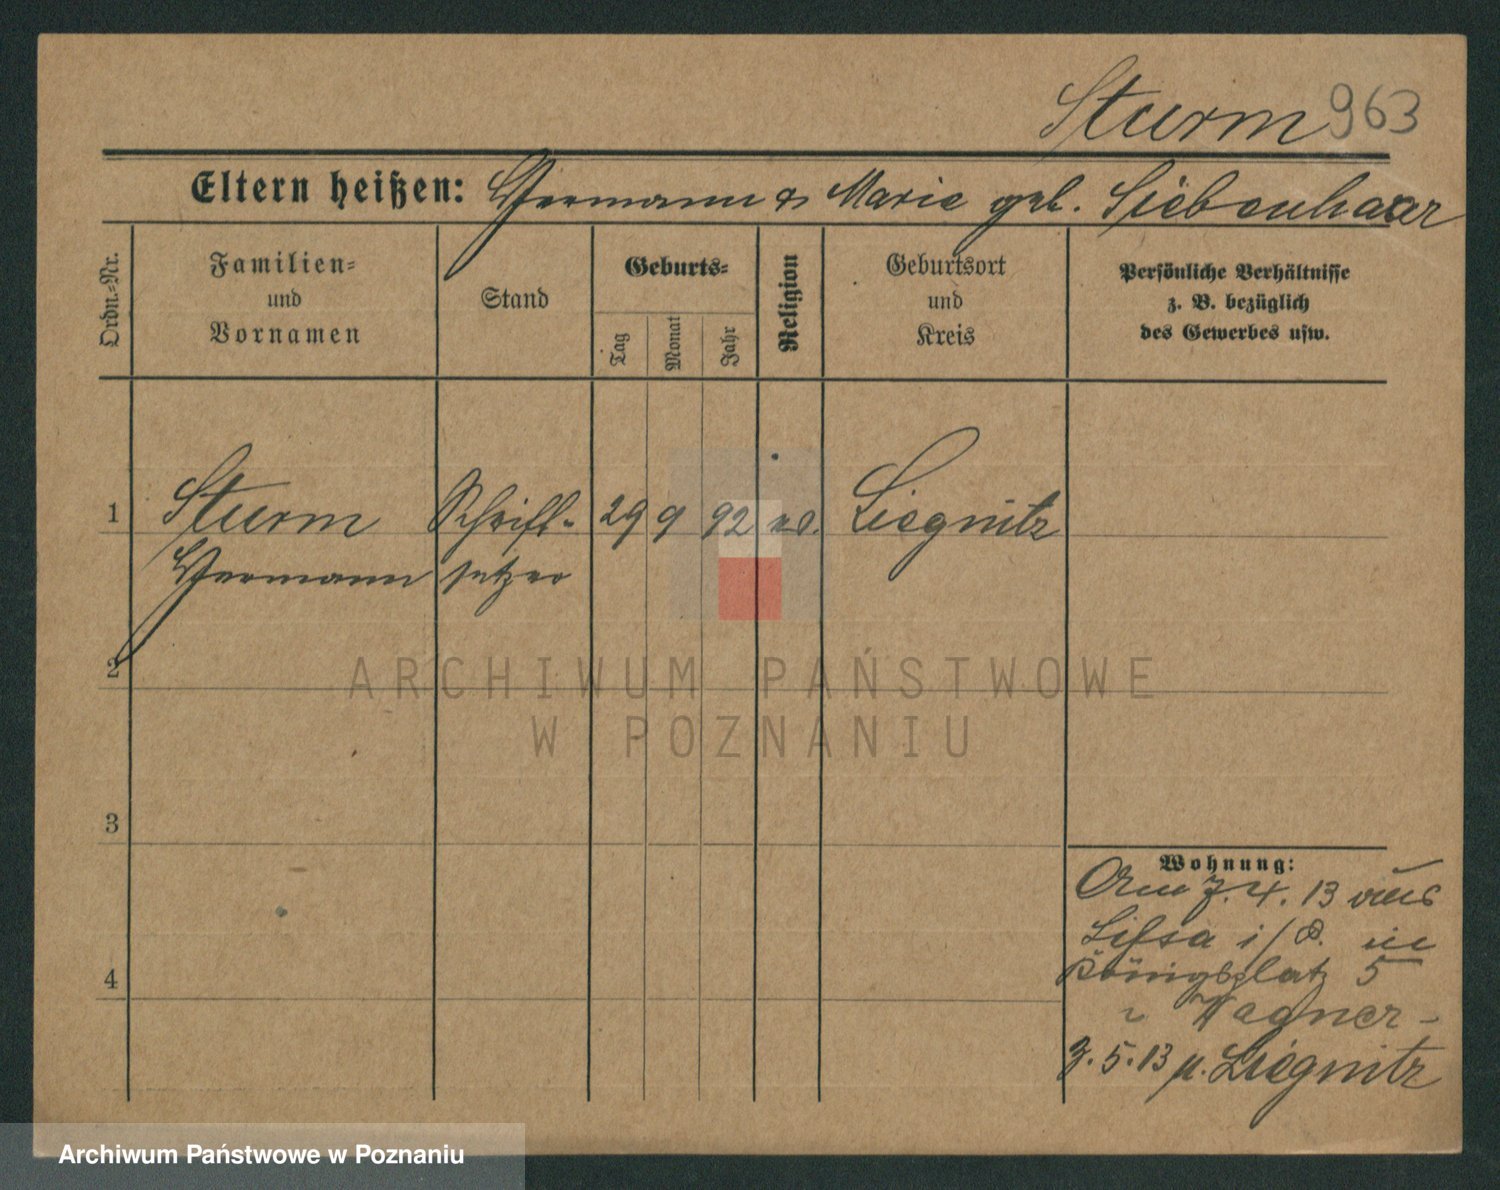 Sturm 963
Eltern heißen: Hermann & Marie geb. Siebenhaar
Ordn.=Nr.
Familien=
und
Vornamen
Stand
Geburts=
Tag
Monat
Jahr
Religion
Geburtsort
und
Kreis
Persönliche Verhältnisse
z. B. bezüglich
des Gewerbes usw.
1 Sturm Schrift- 29 9 92 ev. Liegnitz
Hermann setzer
2
3
4
Wohnung:
Am 7. 4. 13 aus
Lissa i/P. in
Königsplatz 5
Wagner -
3. 5. 13 n. Liegnitz
ARCHIWUM PAŃSTWOWE
W POZNANIU
Archiwum Państwowe w Poznaniu